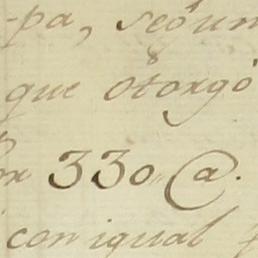 -pa, según
que otorgó
por 330 @.
con igual